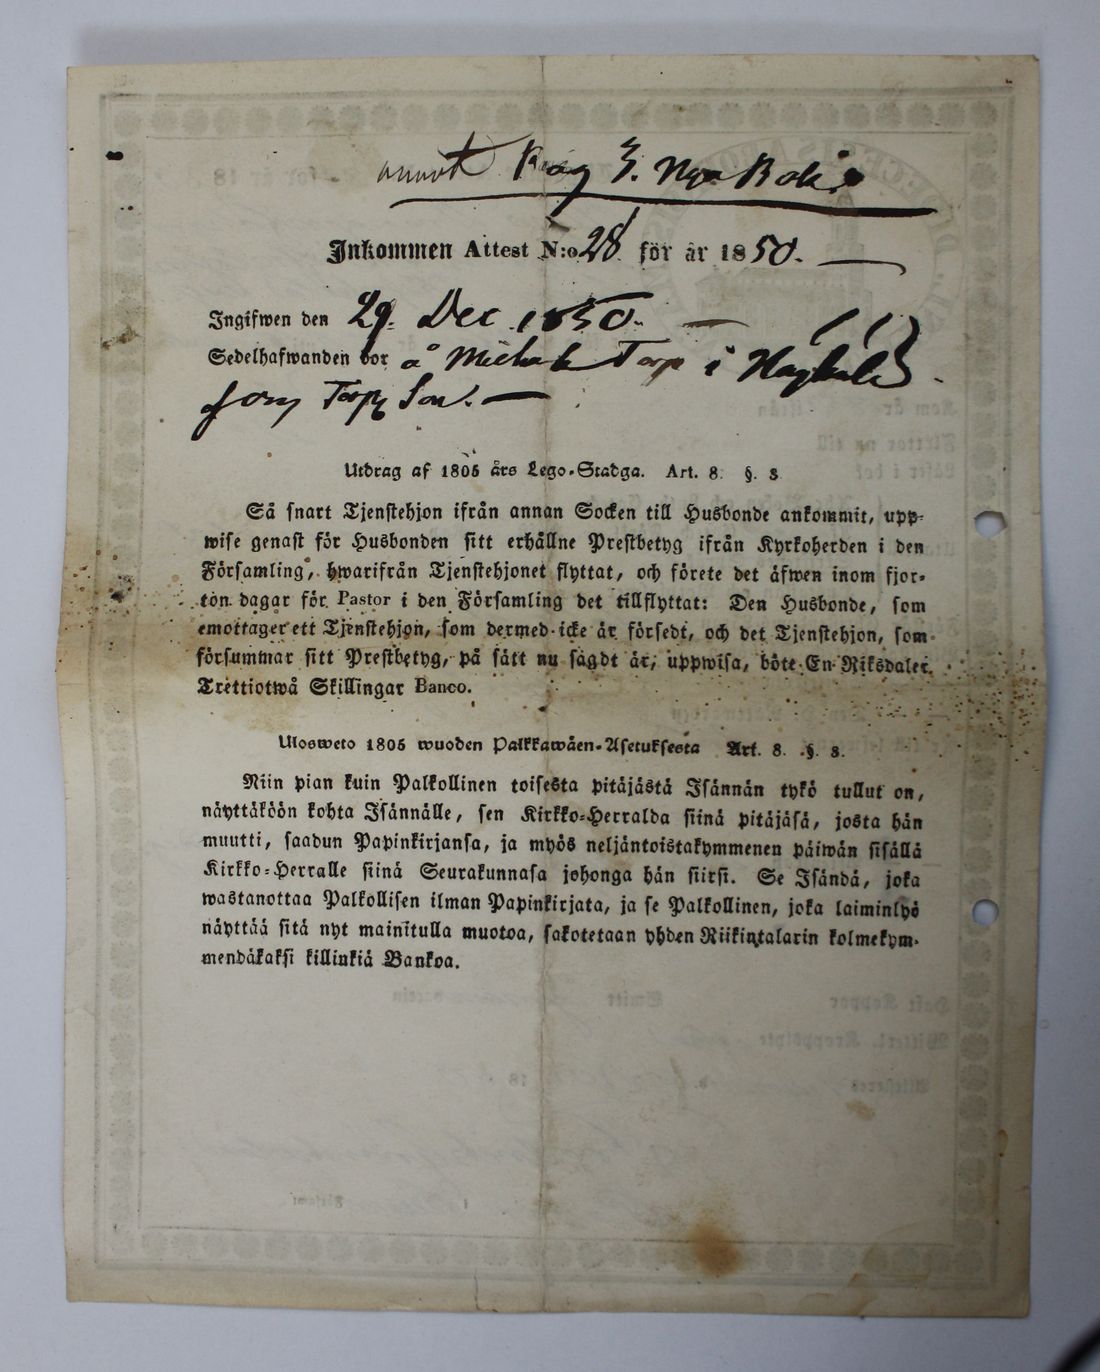 Inkommen Attest N:o 28 för år 1850.
Ingifwen den 29. Dec. 1850.
Sedelhafwanden bor å Torp i
Torp Son.
Utdrag af 1805 års Lego-Stadga. Art. 8. §. 8
Så snart Tjenstehjon ifrån annan Socken till Husbonde ankommit, upp-
wise genast för Husbonden sitt erhållne Prestbetyg ifrån Kyrkoherden i den
Församling, hwarifrån Tjenstehjonet flyttat, och förete det äfwen inom fjor-
ton dagar för Pastor i den Församling det tillflyttat: Den Husbonde, som
emottager ett Tjenstehjon, som dermed icke är försedt, och det Tjenstehjon, som
försummar sitt Prestbetyg, på sätt nu sagdt är, uppwisa, böte En Riksdaler
Trettiotwå Skillingar Banco.
Ulosweto 1805 wuoden Palkkawäen-Asetuksesta Art. 8. §. 8.
Niin pian kuin Palkollinen toisesta pitäjästä Isännän tykö tullut on,
näyttäköön kohta Isännälle, sen Kirkko-Herralda siinä pitäjäsä, josta hän
muutti, saadun Papinkirjansa, ja myös neljäntoistakymmenen päiwän sisällä
Kirkko-Herralle siinä Seurakunnasa johonga hän siirsi. Se Isändä, joka
wastanottaa Palkollisen ilman Papinkirjata, ja se Palkollinen, joka laiminlyö
näyttää sitä nyt mainitulla muotoa, sakotetaan yhden Riikintalarin kolmekym-
mendäkaksi killinkiä Bankoa.